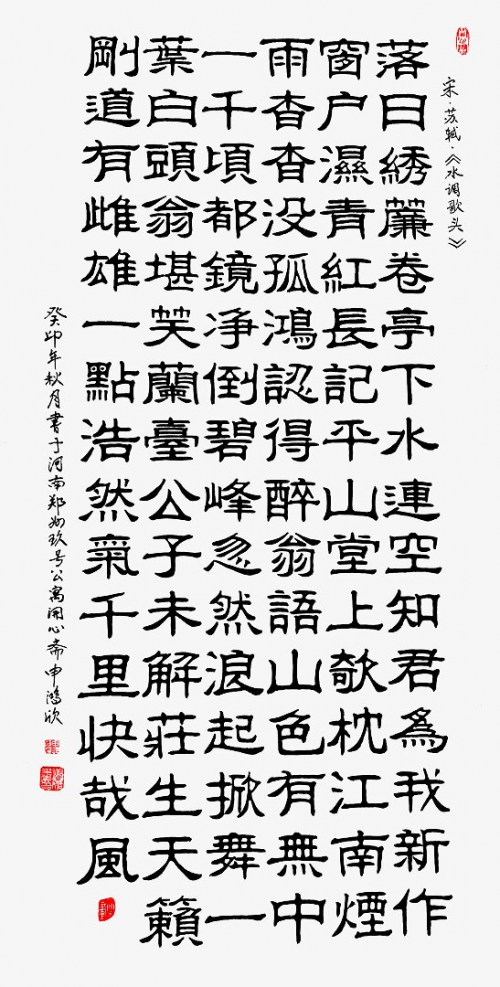 宋·苏轼·《水调歌头》
落日綉簾卷亭下水連空知君爲我新作
窗户濕青紅長記平山堂上欹枕江南煙
雨杳杳没孤鴻認得醉翁語山色有無中
一千頃都鏡净倒碧峰忽然浪起掀舞一
葉白頭翁堪笑蘭臺公子未解莊生天籟
剛道有雌雄一點浩然氣千里快哉風
癸卯年秋月書于河南郑州玖号公寓开心斋申鸿欣